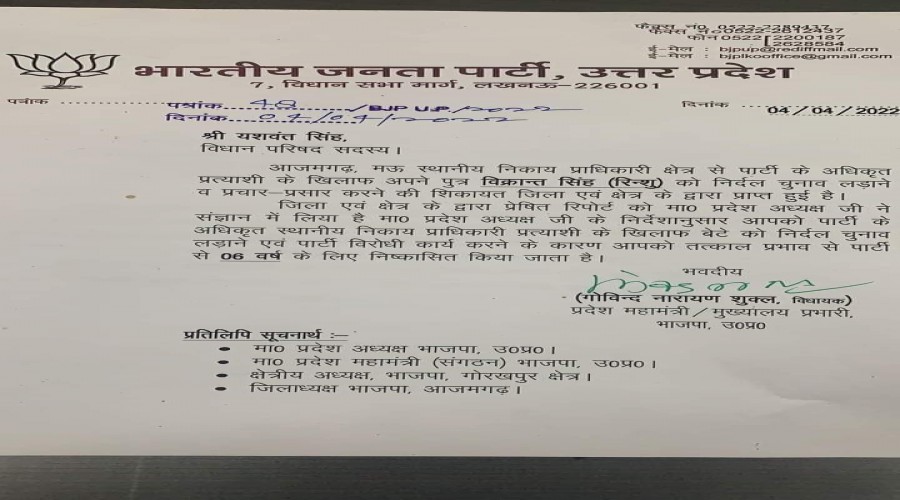 फैक्स नं0 0522-2289437
फैक्स नं० 0522-2612437
फोन 0522 2200187
2628584
ई-मेल : bjpup@rediffmail.com
ई-मेल : bjplkooffice@gmail.com
भारतीय जनता पार्टी, उत्तर प्रदेश
7, विधान सभा मार्ग, लखनऊ-226001
पत्रांक
पत्रांक 48/BJP UP/2022
दिनांक
04/04/2022
दिनांक 04/04/2022
श्री यशवंत सिंह,
विधान परिषद सदस्य।
आजमगढ़, मऊ स्थानीय निकाय प्राधिकारी क्षेत्र से पार्टी के अधिकृत
प्रत्याशी के खिलाफ अपने पुत्र विक्रान्त सिंह (रिन्शु) को निर्दल चुनाव लड़ाने
व प्रचार-प्रसार करने की शिकायत जिला एवं क्षेत्र के द्वारा प्राप्त हुई है।
जिला एवं क्षेत्र के द्वारा प्रेषित रिपोर्ट को मा0 प्रदेश अध्यक्ष जी ने
संज्ञान में लिया है मा0 प्रदेश अध्यक्ष जी के निर्देशानुसार आपको पार्टी के
अधिकृत स्थानीय निकाय प्राधिकारी प्रत्याशी के खिलाफ बेटे को निर्दल चुनाव
लड़ाने एवं पार्टी विरोधी कार्य करने के कारण आपको तत्काल प्रभाव से पार्टी
से 06 वर्ष के लिए निष्कासित किया जाता है।
भवदीय
(गोविन्द नारायण शुक्ल, विधायक)
प्रदेश महामंत्री/मुख्यालय प्रभारी,
भाजपा, उ0प्र0
प्रतिलिपि सूचनार्थ :-
• मा0 प्रदेश अध्यक्ष भाजपा, उ0प्र0।
• मा0 प्रदेश महामंत्री (संगठन) भाजपा, उ0प्र0।
• क्षेत्रीय अध्यक्ष, भाजपा, गोरखपुर क्षेत्र।
• जिलाध्यक्ष भाजपा, आजमगढ़।